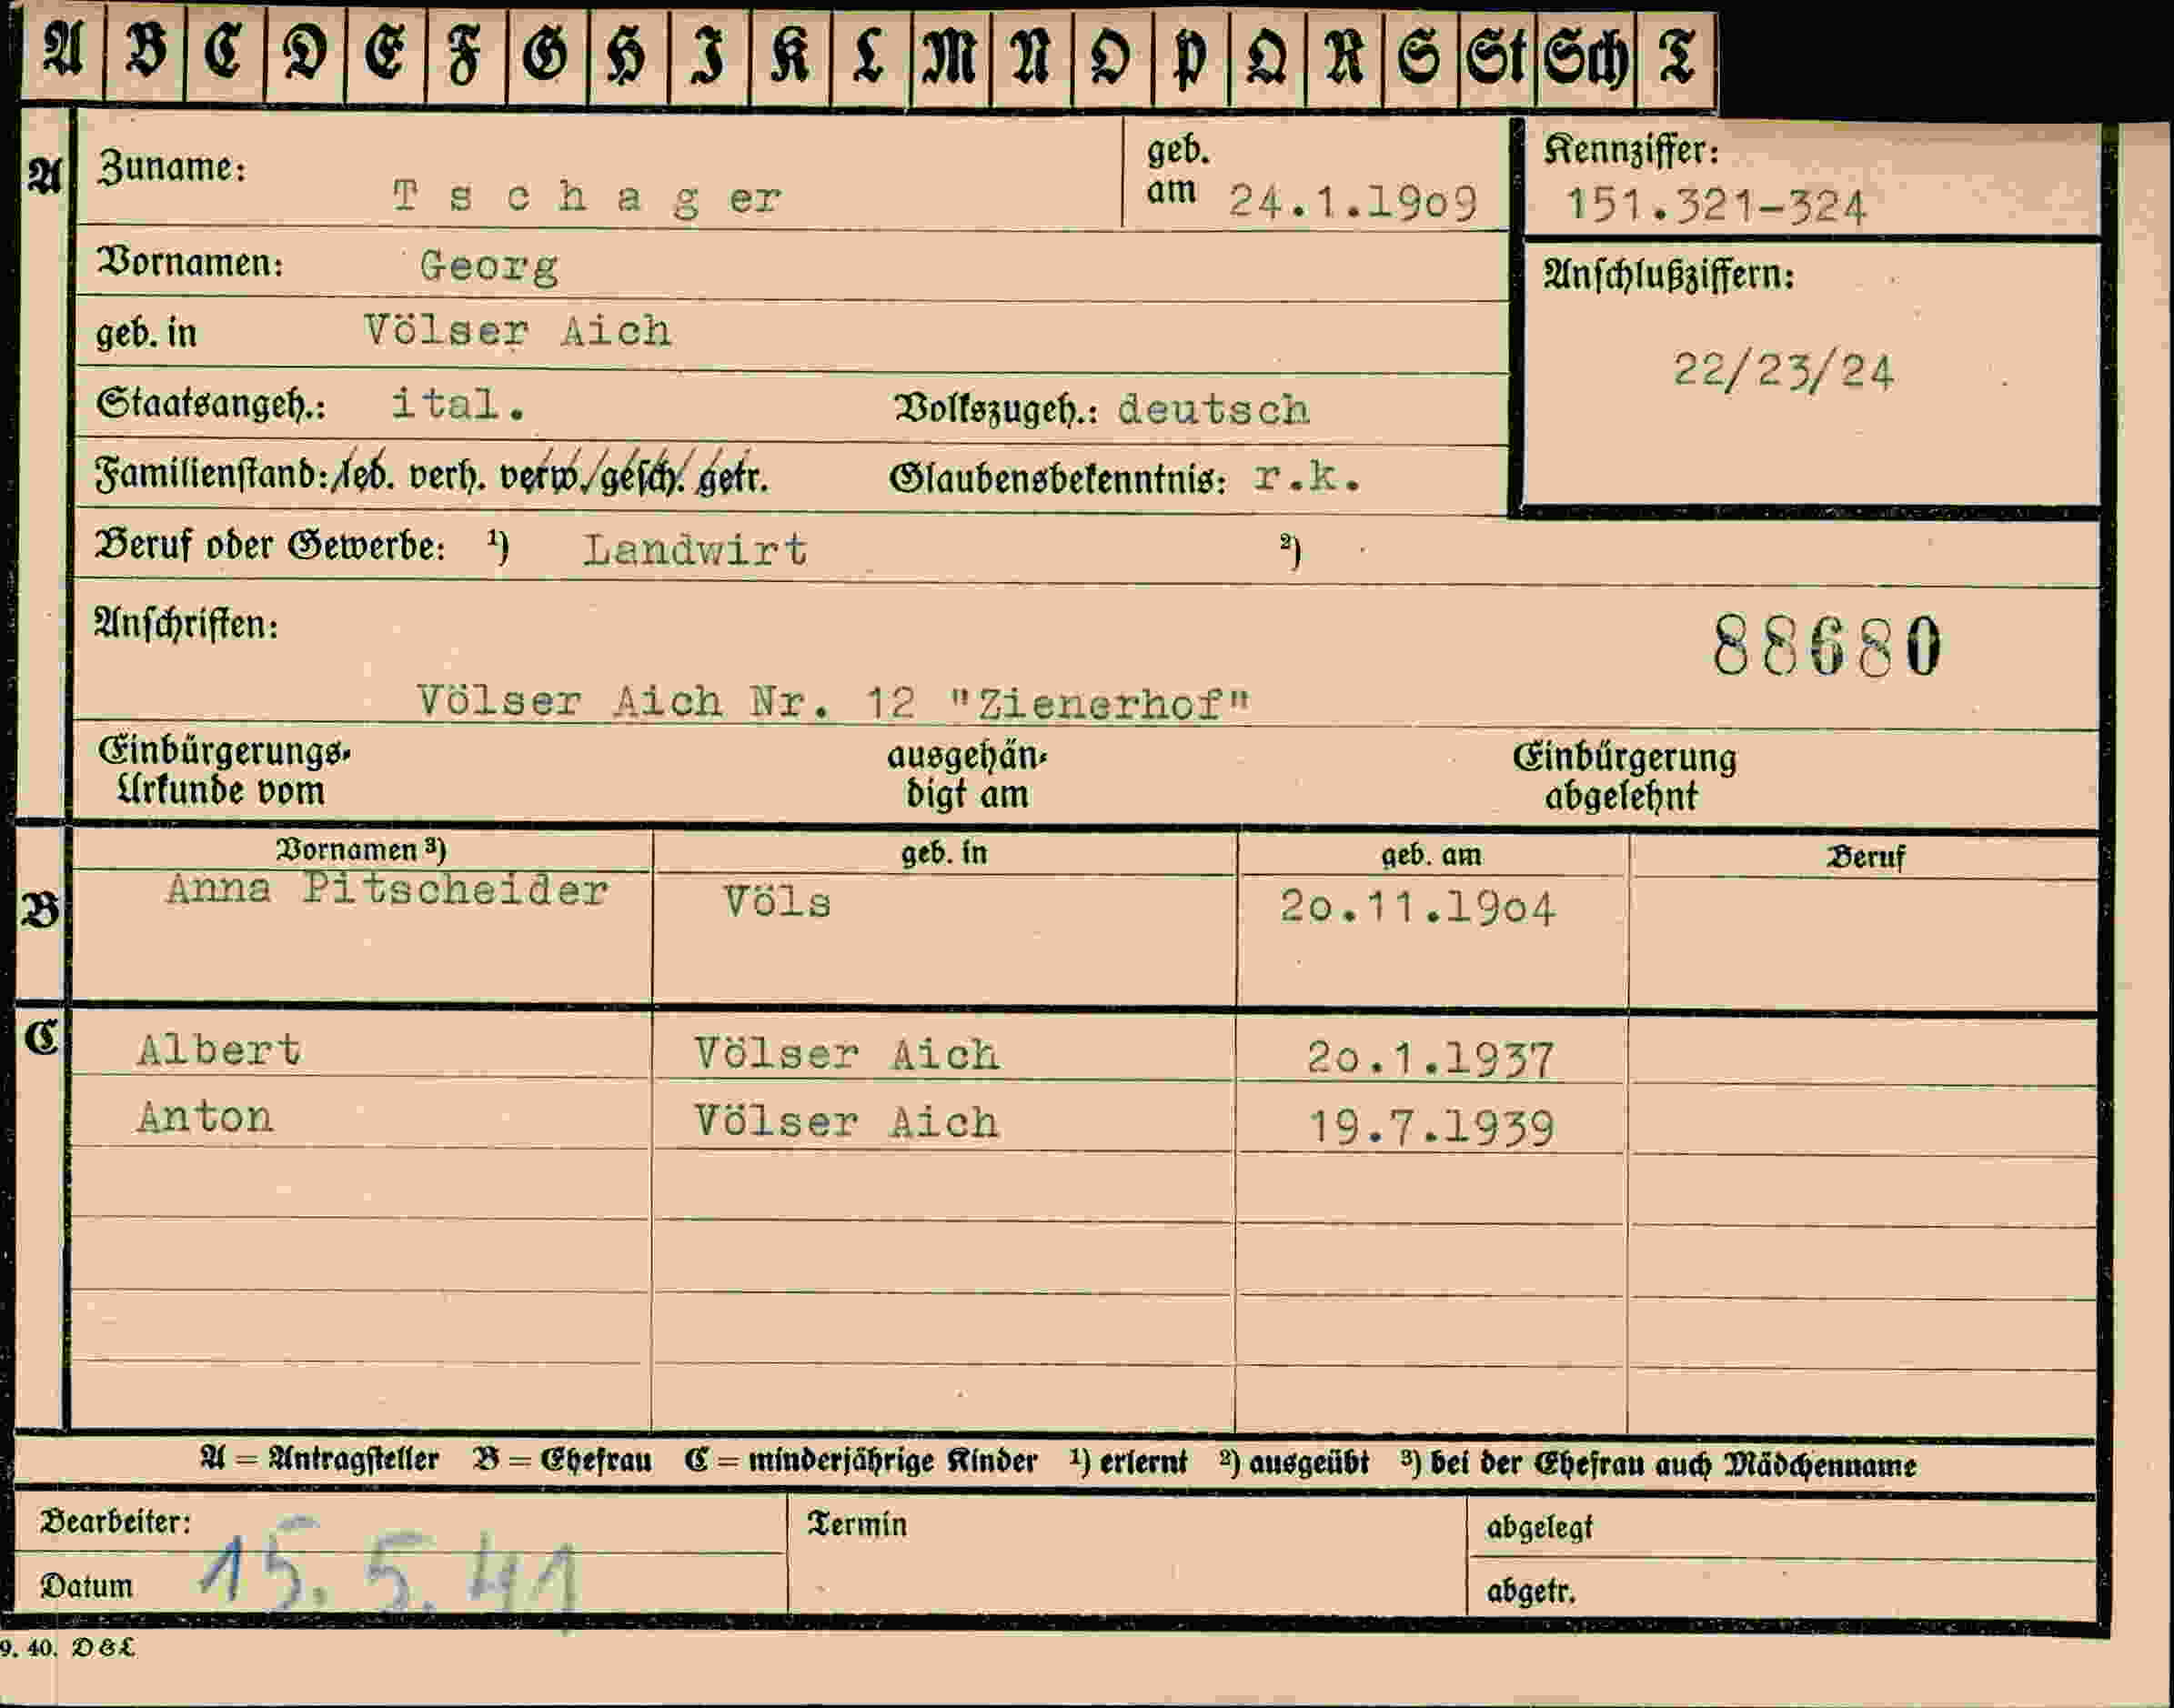 A B C D E F G H I K L M N O P Q R S St Sch T
A
Zuname: Tschager
geb. am 24.1.1909
Kennziffer:
151.321-324
Vornamen: Georg
Anschlußziffern:
22/23/24
geb. in Völser Aich
Staatsangeh.: ital. Volkszugeh.: deutsch
Familienstand: led. verh. verw. gesch. getr. Glaubensbekenntnis: r.k.
Beruf oder Gewerbe: ¹) Landwirt ²)
Anschriften:
88680
Völser Aich Nr. 12 "Zienerhof"
Einbürgerungs-
Urkunde vom
ausgehän-
digt am
Einbürgerung
abgelehnt
Vornamen ³) geb. in geb. am Beruf
B Anna Pitscheider Völs 20.11.1904
C Albert Völser Aich 20.1.1937
Anton Völser Aich 19.7.1939
A = Antragsteller B = Ehefrau C = minderjährige Kinder ¹) erlernt ²) ausgeübt ³) bei der Ehefrau auch Mädchenname
Bearbeiter: Termin abgelegt
Datum 15.5.41 abgetr.
9. 40. D&L